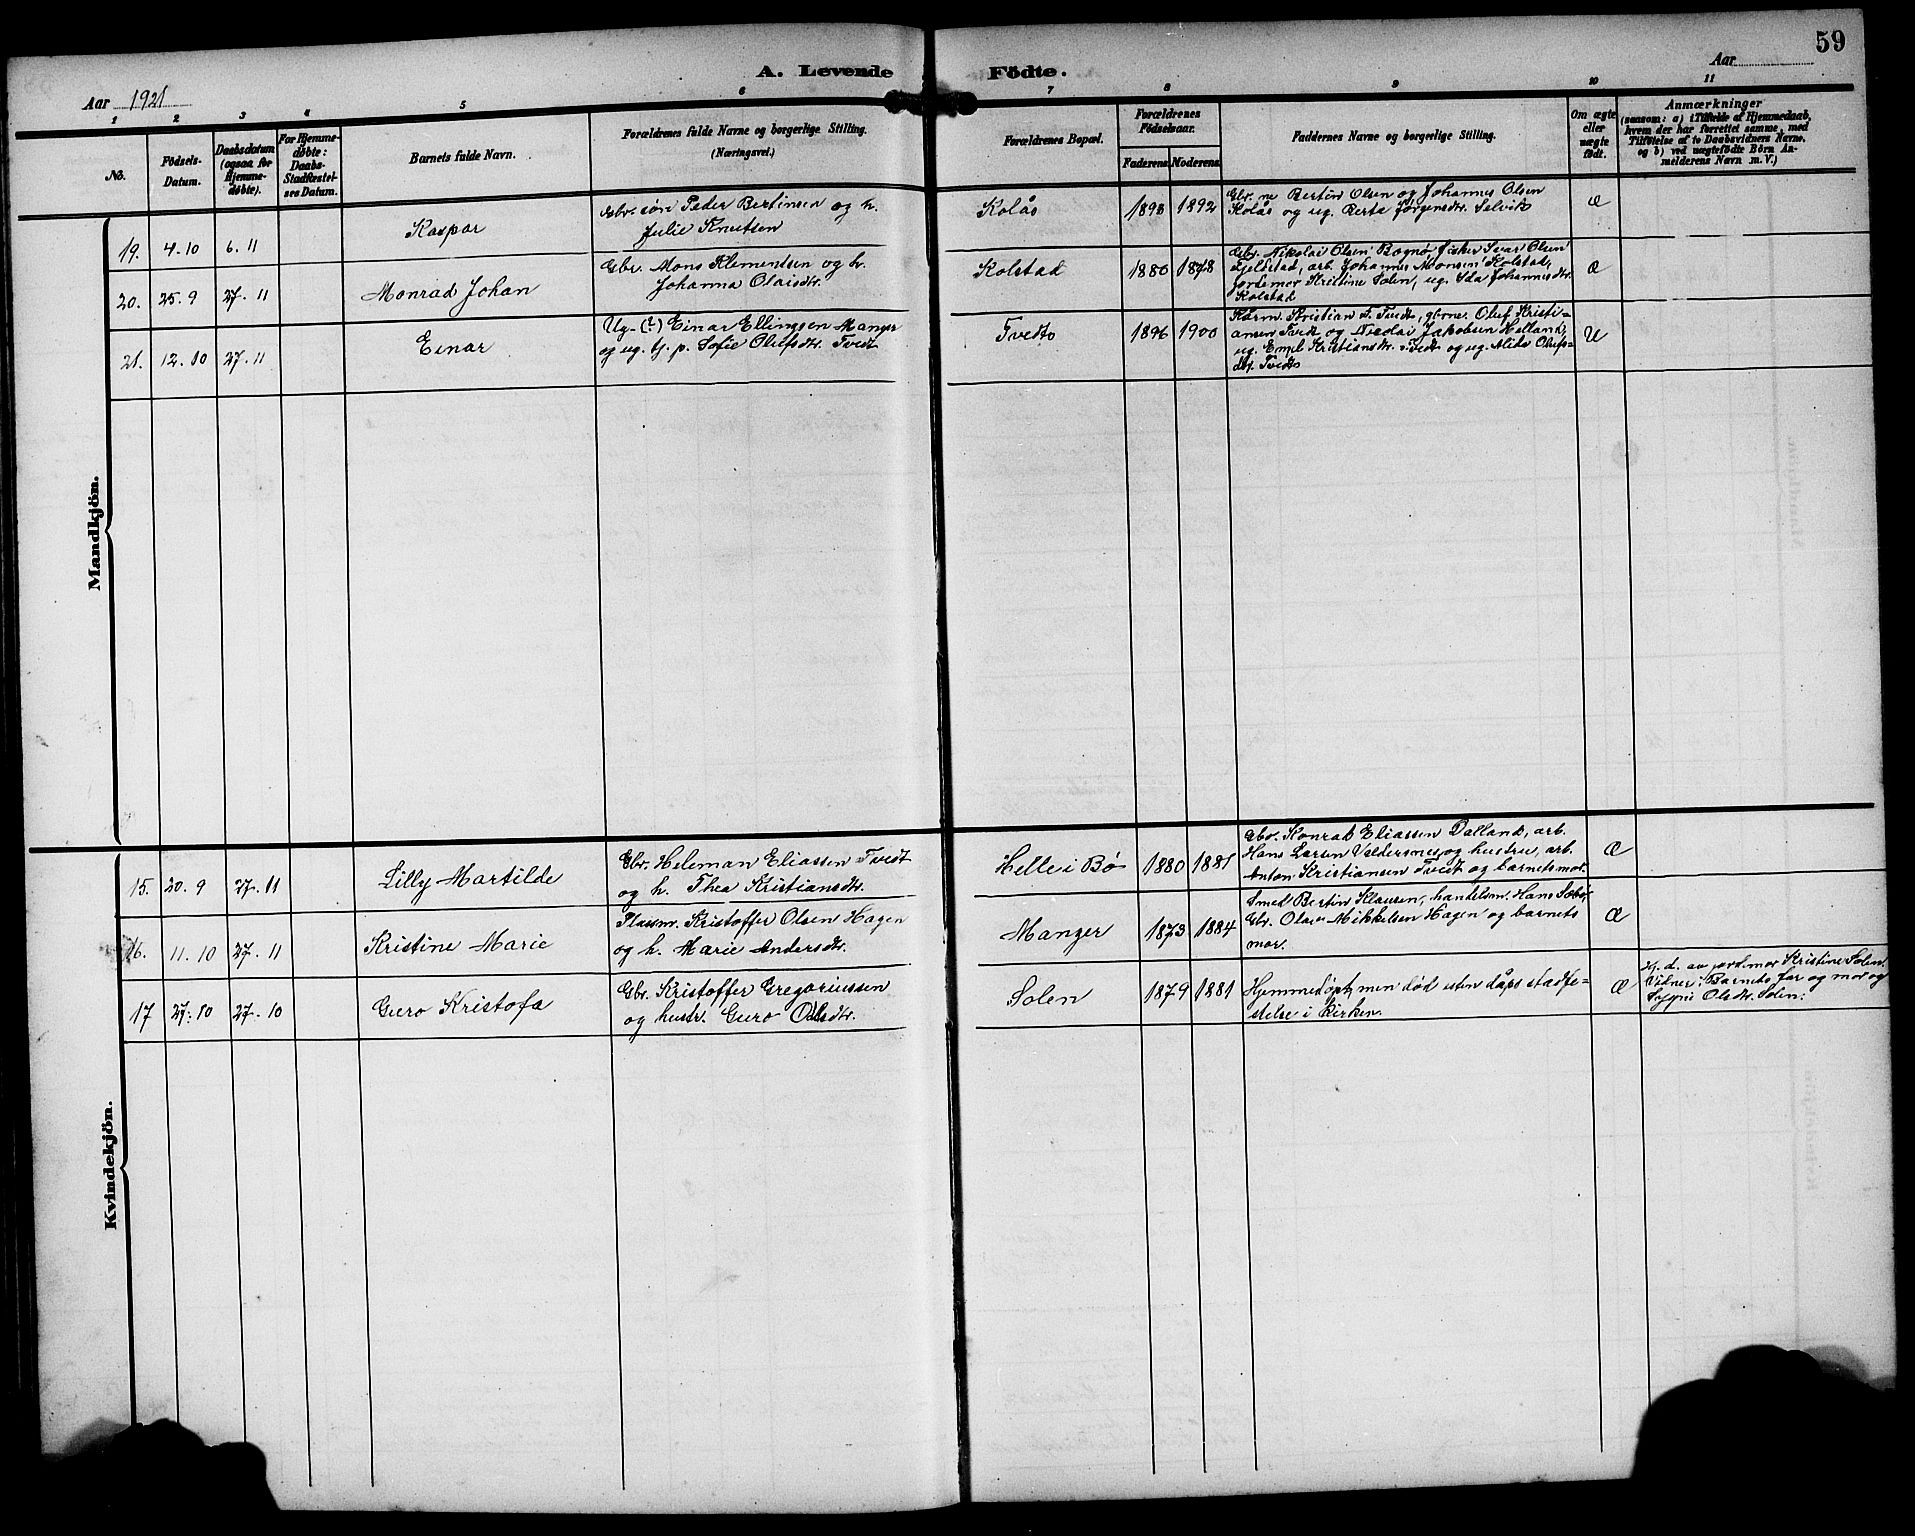 59
A. Levende Födte.
Aar 1921
Aar
1 2 3 4 5 6 7 8 9 10 11
No.
Födsels-
Datum.
Daabsdatum
(ogsaa for
Hjemme-
døbte).
For Hjemme-
døbte:
Daabs-
Stadfæstel-
ses Datum.
Barnets fulde Navn.
Forældrenes fulde Navne og borgerlige Stilling.
(Næringsvei.)
Forældrenes Bopæl.
Forældrenes
Födselsaar.
Faderens Moderens
Faddernes Navne og borgerlige Stilling.
Om ægte
eller
uægte
født.
Anmærkninger
(saasom: a) i Tilfælde af Hjemmedaab,
hvem der har forrettet samme, med
Tilføielse af to Daabsvidners Navne.
og b) ved uægtefødte Börn An-
melderens Navn m. V.)
Mandkjön.
19. 4.10 6.11 Kaspar
Gbr. søn Peder Bertinsen og h.
Julie Knutsen
Kolås 1893 1892
Gbr. ne Bertin Olsen og Johannes Olsen
Kolås og ug. Berta Jørgensdtr. Selvik
Æ
20. 25.9 27.11 Monrad Johan
Gbr. Mons Klementsen og h.
Johanna Olaisdtr.
Kolstad 1880 1878
Gbr. Nikolai Olsen Bognø, fisker Ivar Olsen
Fjeldstad, arb. Johannes Monsen Kolstad,
jordemor Kristine Solen, ug. Ida Johannesdtr.
Kolstad
Æ
21. 12.10 27.11 Einar
Ug. (?) Einar Ellingsen Manger
og ug. tj. p. Sofie Olufsdtr. Tvedt
Tvedto 1896 1900
Kårm. Kristian T. Tvedt, gbrne. Oluf Kristi-
ansen Tvedt og Nicolai Jakobsen Helland,
ug. Emil Kristiansdtr. Tvedt og ug. Alida Olufs-
dtr. Tvedto
U
Kvindekjön.
15. 20.9 27.11 Lilly Martilde
Gbr. Heleman Eliassen Tvedt
og h. Thea Kristiansdtr.
Helle i Bø 1880 1881
Gbr. Konrad Eliassen Dalland, arb.
Hans Larsen Valdersnes og hustru, arb.
Anton Kristiansen Tvedt og barnets mor.
Æ
16. 11.10 27.11 Kristine Marie
Plassm. Kristoffer Olsen Hagen
og h. Marie Andersdtr.
Manger 1873 1884
Smed Bertin Klausen, handelsm. Hans Sæbø,
Gbr. Olav Mikkelsen Hagen og barnets
mor.
Æ
17 27.10 27.10 Guro Kristofa
Gbr. Kristoffer Gregoriussen
og hustr. Guro Olsdtr.
Solen 1879 1881
Hjemmedøpt, men død uten dåps stadfe-
stelse i kirken.
Æ
Hj. d. av jordemor Kristine Solen.
Vidner: Barnets far og mor og
Sofie Olsdtr. Solen.